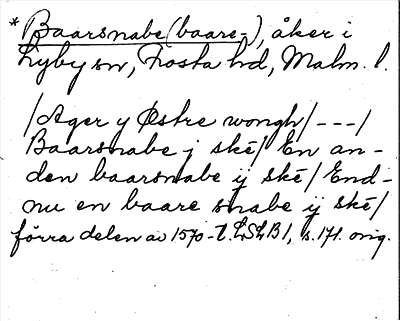 * Baarsnabe (baare-), åker i
Lyby sn, Frosta hd, Malm. l.
/Ager y Østre wongh/---/
Baarsnabe j ské/ En an-
den baarsnabe ij ské/ End-
nu en baare snabe ij ské/
förra delen av 1570-t. LSLB1, s. 171. orig.